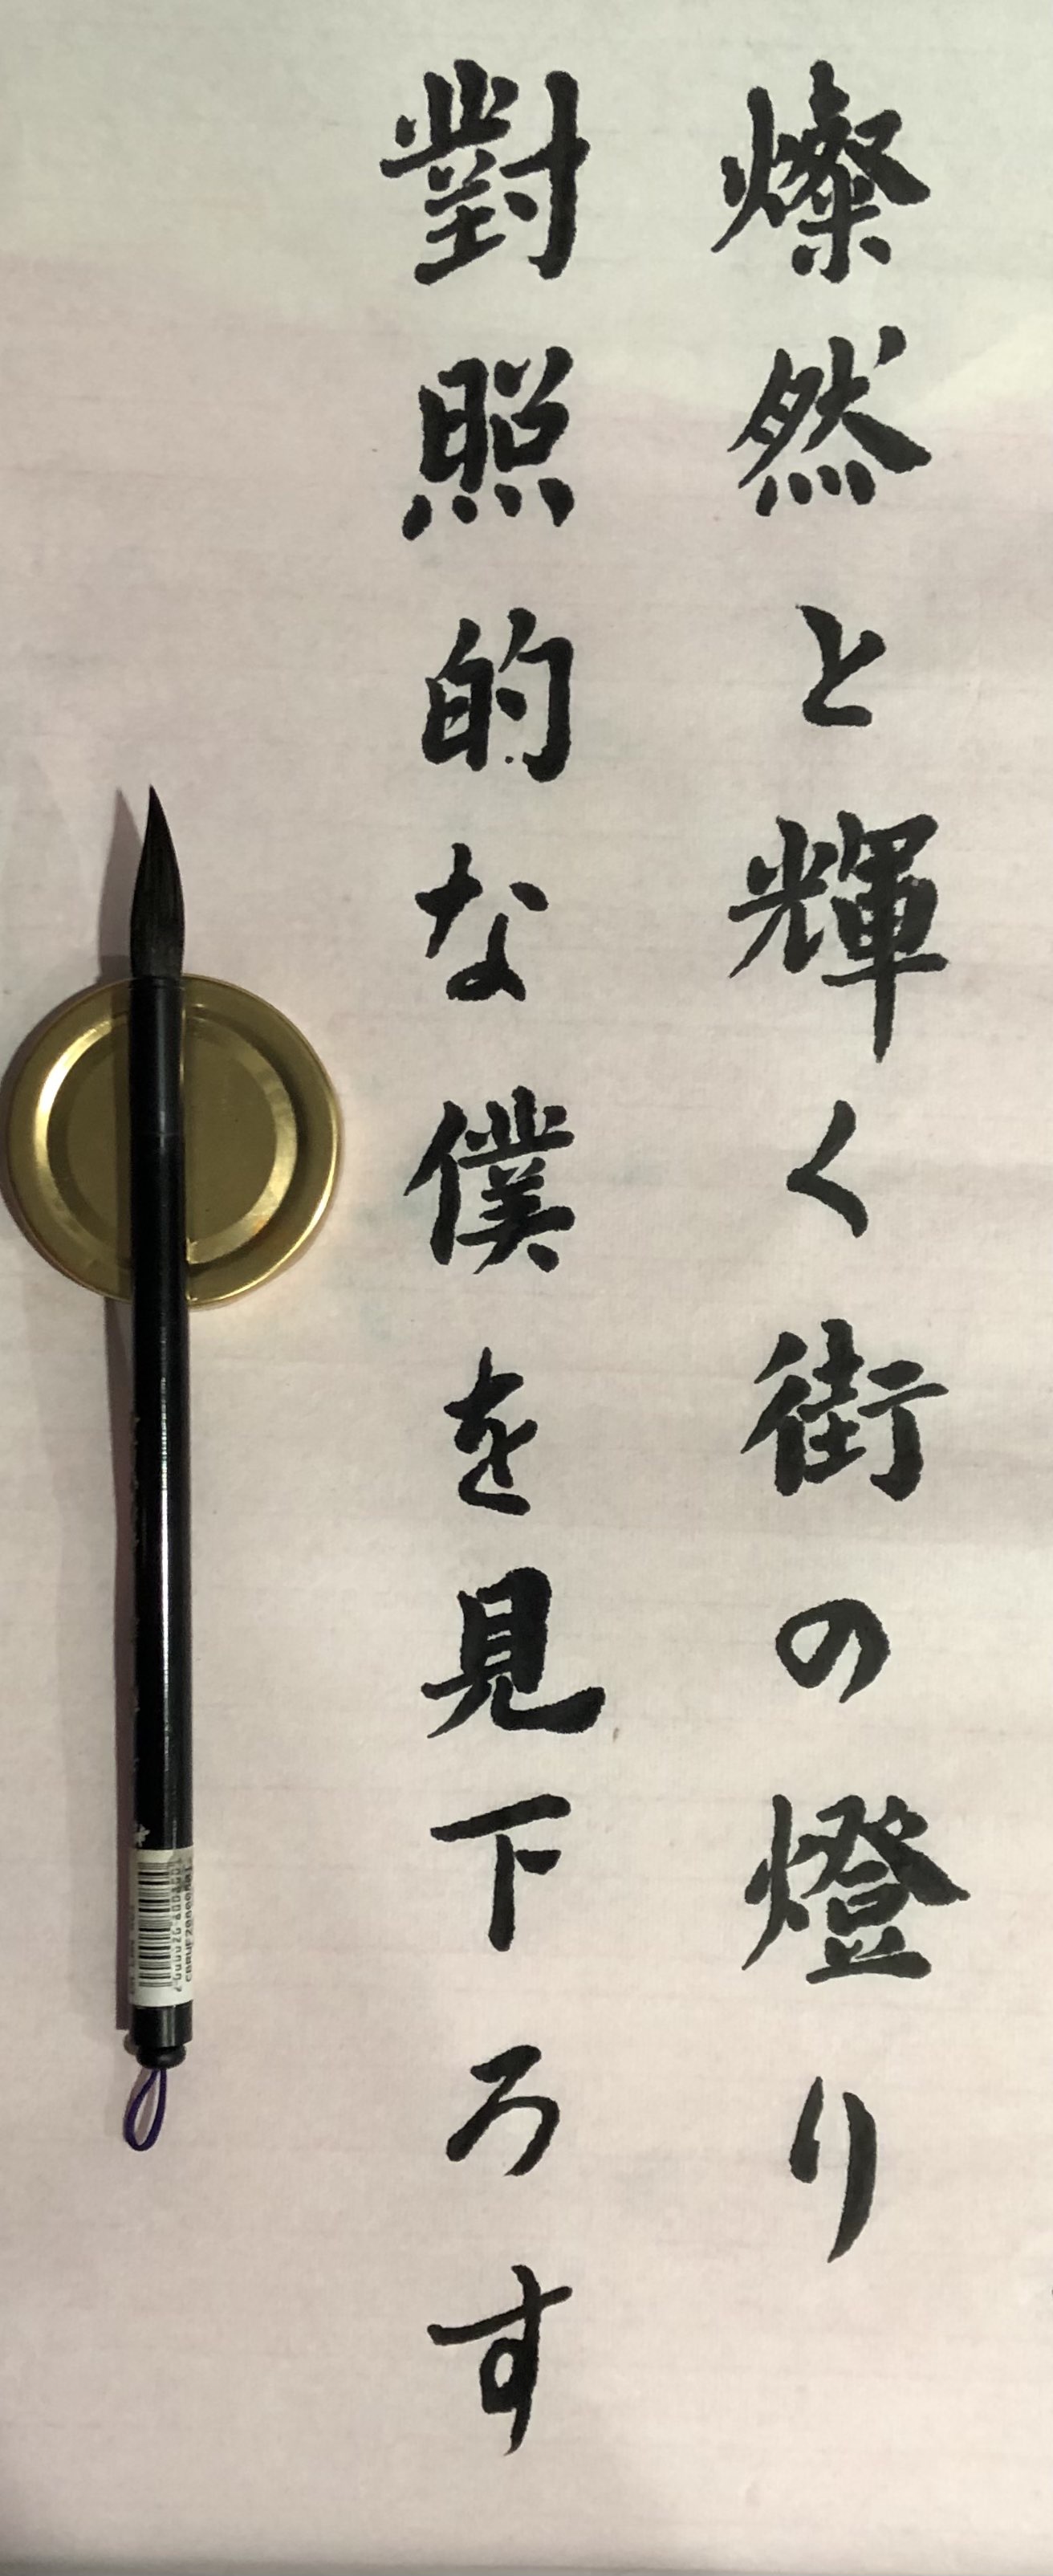 燦然と輝く街の燈り
對照的な僕を見下ろす